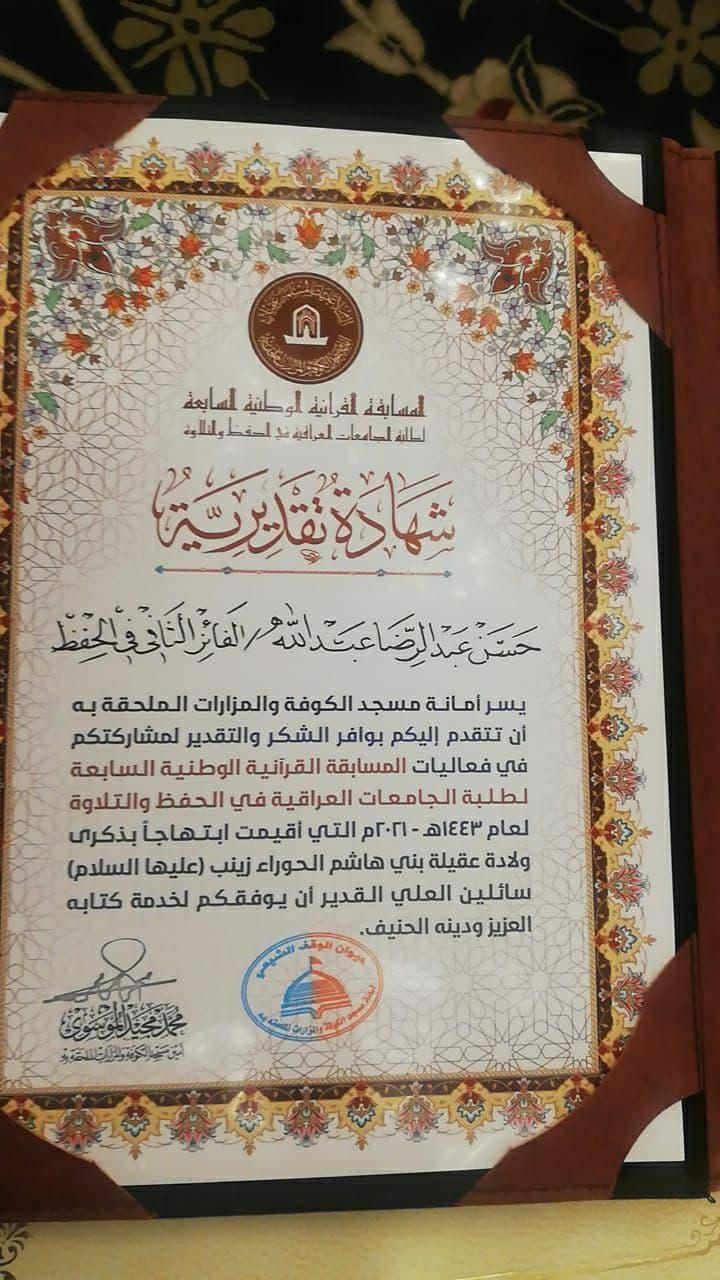 المسابقة القرآنية الوطنية السابعة
لطلبة الجامعات العراقية في الحفظ والتلاوة
شَهَادَةٌ تَقْدِيرِيَّةٌ
حَسَن عَبد الرِّضَا عَبد اللّٰه / الفَائِز الثَّانِي فِي الحِفْظ
يسر أمانة مسجد الكوفة والمزارات الملحقة به
أن تتقدم إليكم بوافر الشكر والتقدير لمشاركتكم
في فعاليات المسابقة القرآنية الوطنية السابعة
لطلبة الجامعات العراقية في الحفظ والتلاوة
لعام ١٤٤٣هـ - ٢٠٢١م التي أقيمت ابتهاجاً بذكرى
ولادة عقيلة بني هاشم الحوراء زينب (عليها السلام)
سائلين العلي القدير أن يوفقكم لخدمة كتابه
العزيز ودينه الحنيف.
ديوان الوقف الشيعي
أمانة مسجد الكوفة والمزارات الملحقة به
محمد مجيد الموسوي
أمين مسجد الكوفة والمزارات الملحقة به